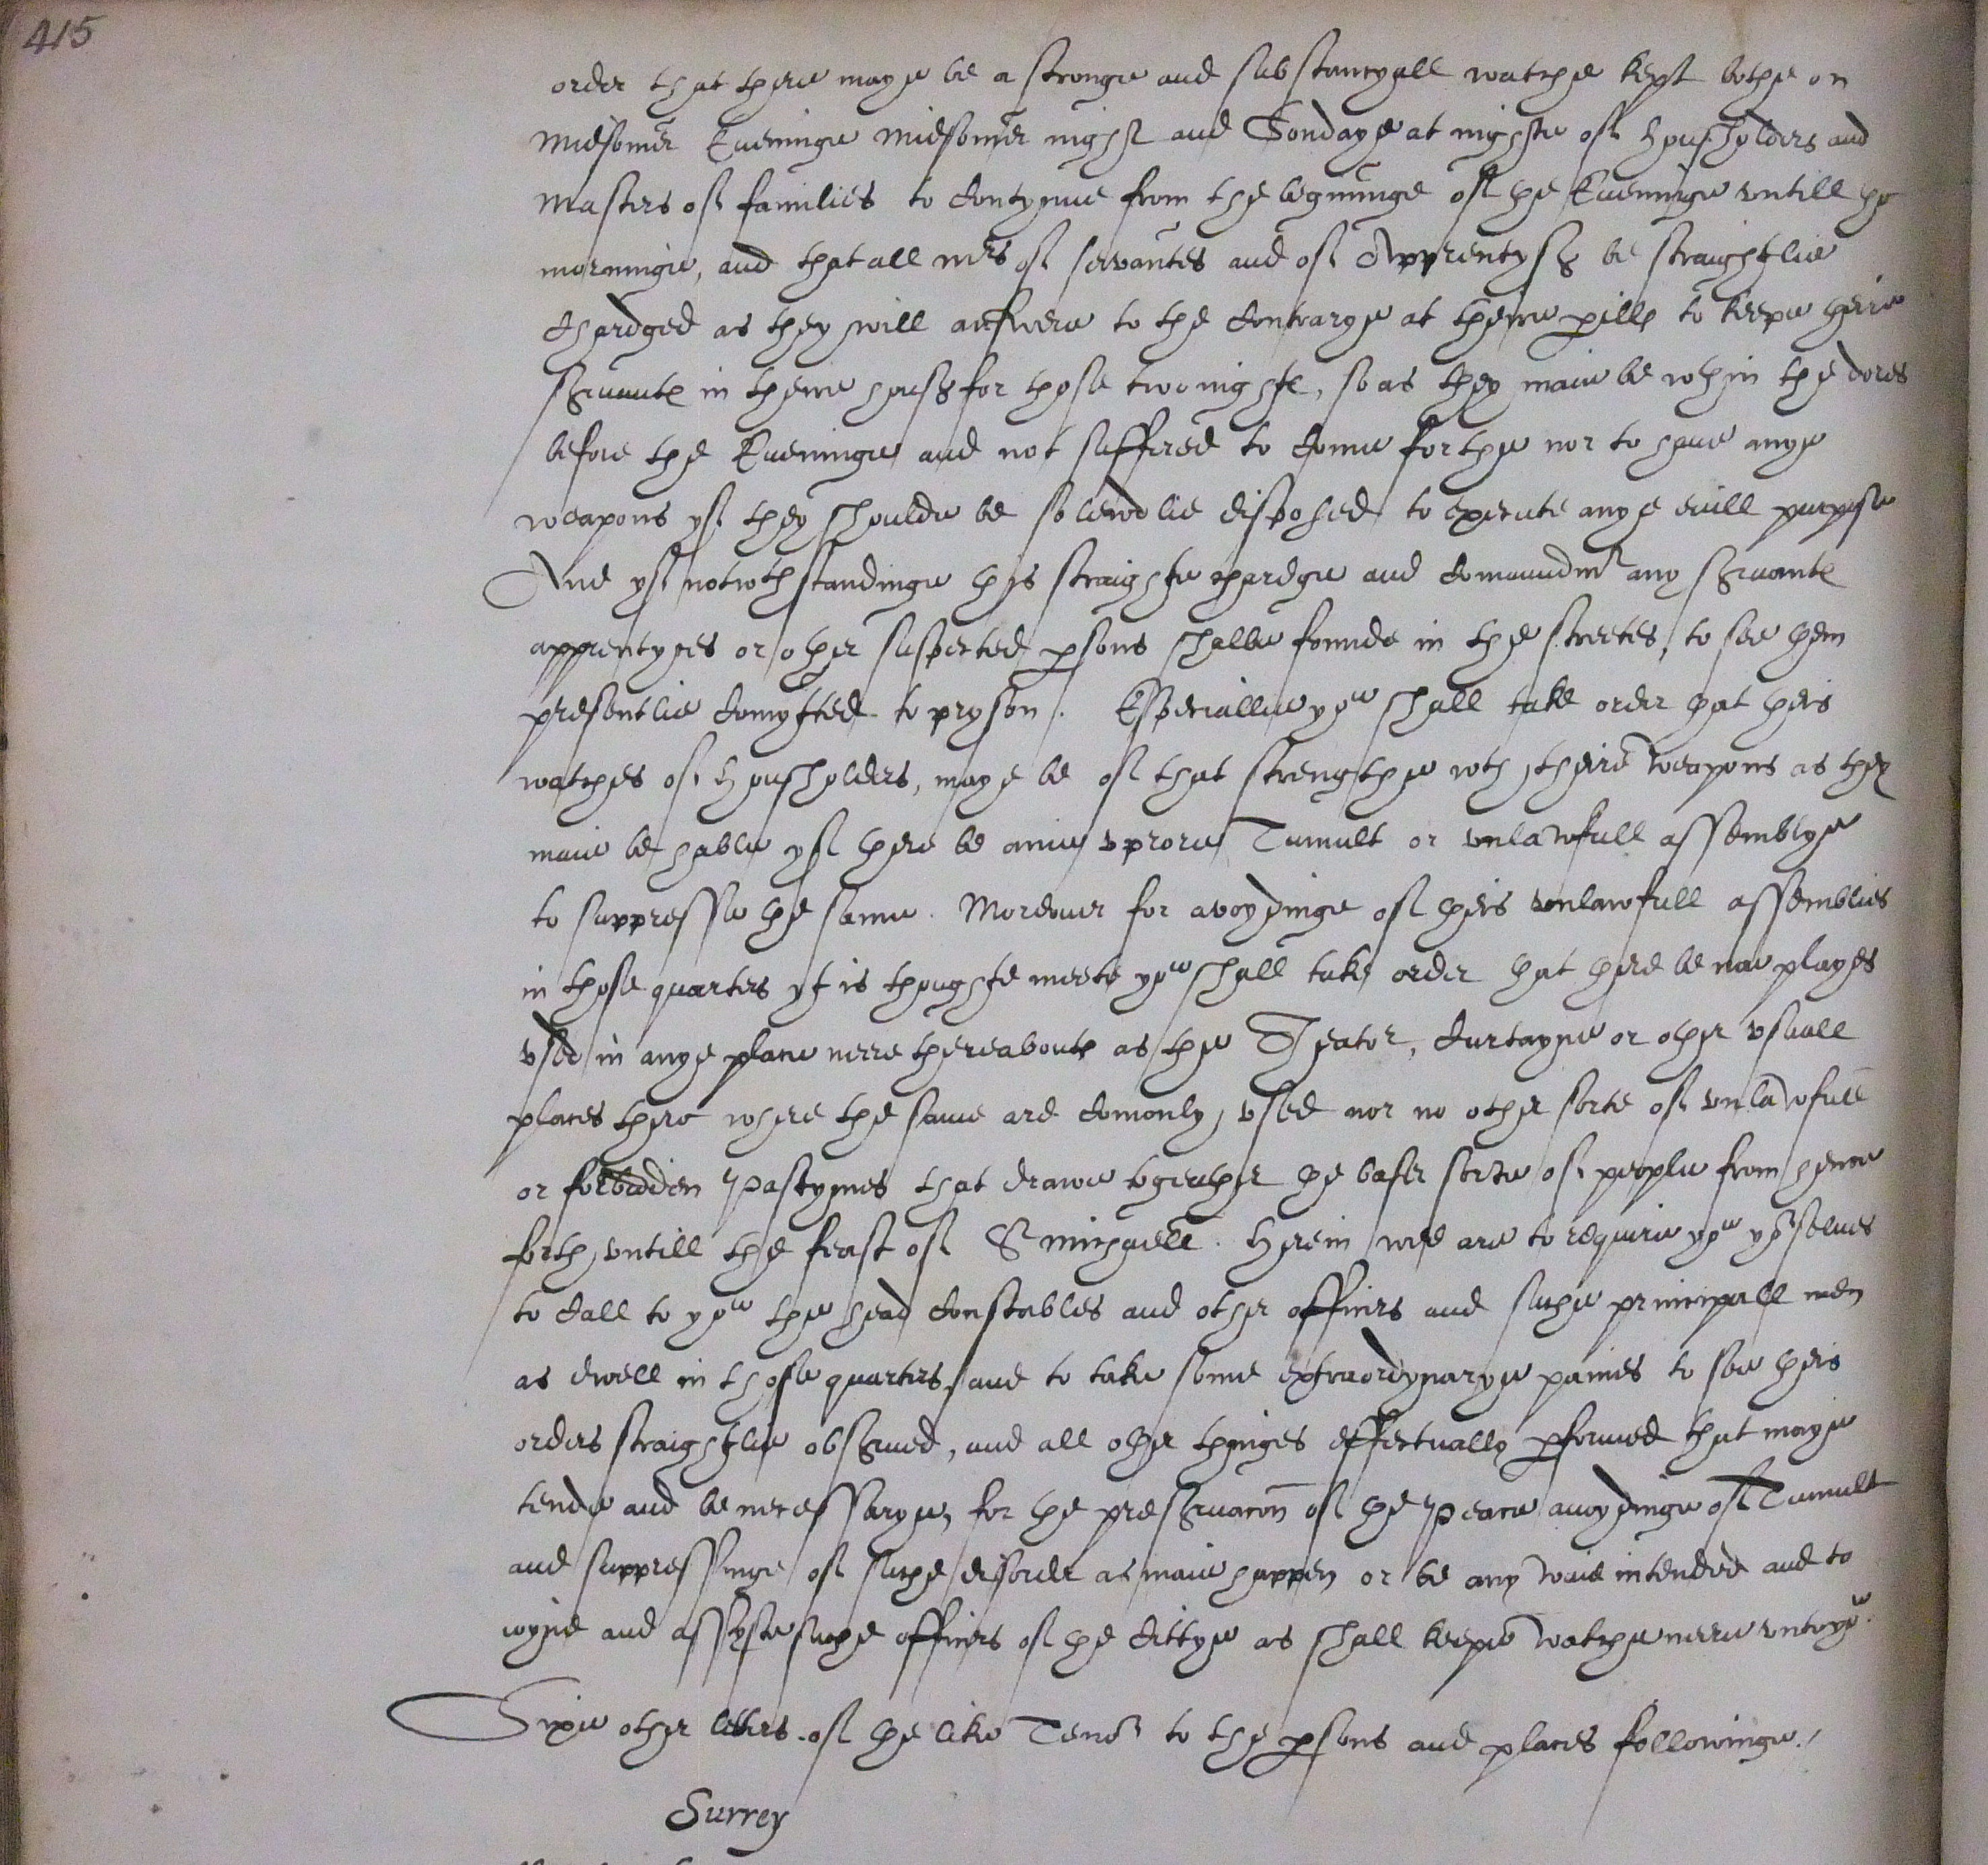 415
order that there maye be a stronge and substancyall watche kept bothe on
Midsomer Eveninge Midsomer night and Sondaye at nighte of housholders and
masters of families to contynue from the begninge of the Eveninge vntill the
morninge, and that all mrs of servantes and of Apprentyses be straightlie
chardged as they will answere to the contrarye at theire perills to keepe theire
servantes in theire houses for those two nightes, so as they maie be wthin the dores
before the Eveninge and not suffered to come forthe nor to have anye
weapons yf they shoulde be so lewdlie disposed to execute anye evill purpose
And yf notwthstandinge this straighte chardge and comaundmt any servantes
apprentyces or other suspected psons shalbe founde in the streetes, to see them
presentlie comytted to pryson. Especiallie yow shall take order that theis
watches of housholders, maye be of that strengthe wth theire weapons as they
maie be hable yf there be anie vprore Tumult or vnlawfull assemblye
to suppresse the same. Moreover for avoydinge of theis vnlawfull assemblies
in those quarters yt is thoughte meete yow shall take order that there be noe playes
vsed in anye place neere thereaboutes as the Theator, Curtayne or other vsuall
places there where the same are comonly vsed nor no other sorte of vnlawfull
or forbidden Pastymes that drawe togeather the baser sorte of people from hence
forth vntill the feast of St Michaell. Herein wee are to require yow yor selves
to call to yow the head constables and other officers and suche principall men
as dwell in those quarters, and to take some extraordynarye paines to see theis
orders straightlie observed, and all other thinges effectually pformed that maye
tende and be necessarye, for the preservacon of the Peace avoydinge of Tumult
and suppressinge of suche disorder as maie happen or be any waie intended and to
ioyne and assyste suche officers of the Cittye as shall keepe watche neere vnto yow.
Sixe other letters of the like Tenor to the psons and places followinge./
Surrey